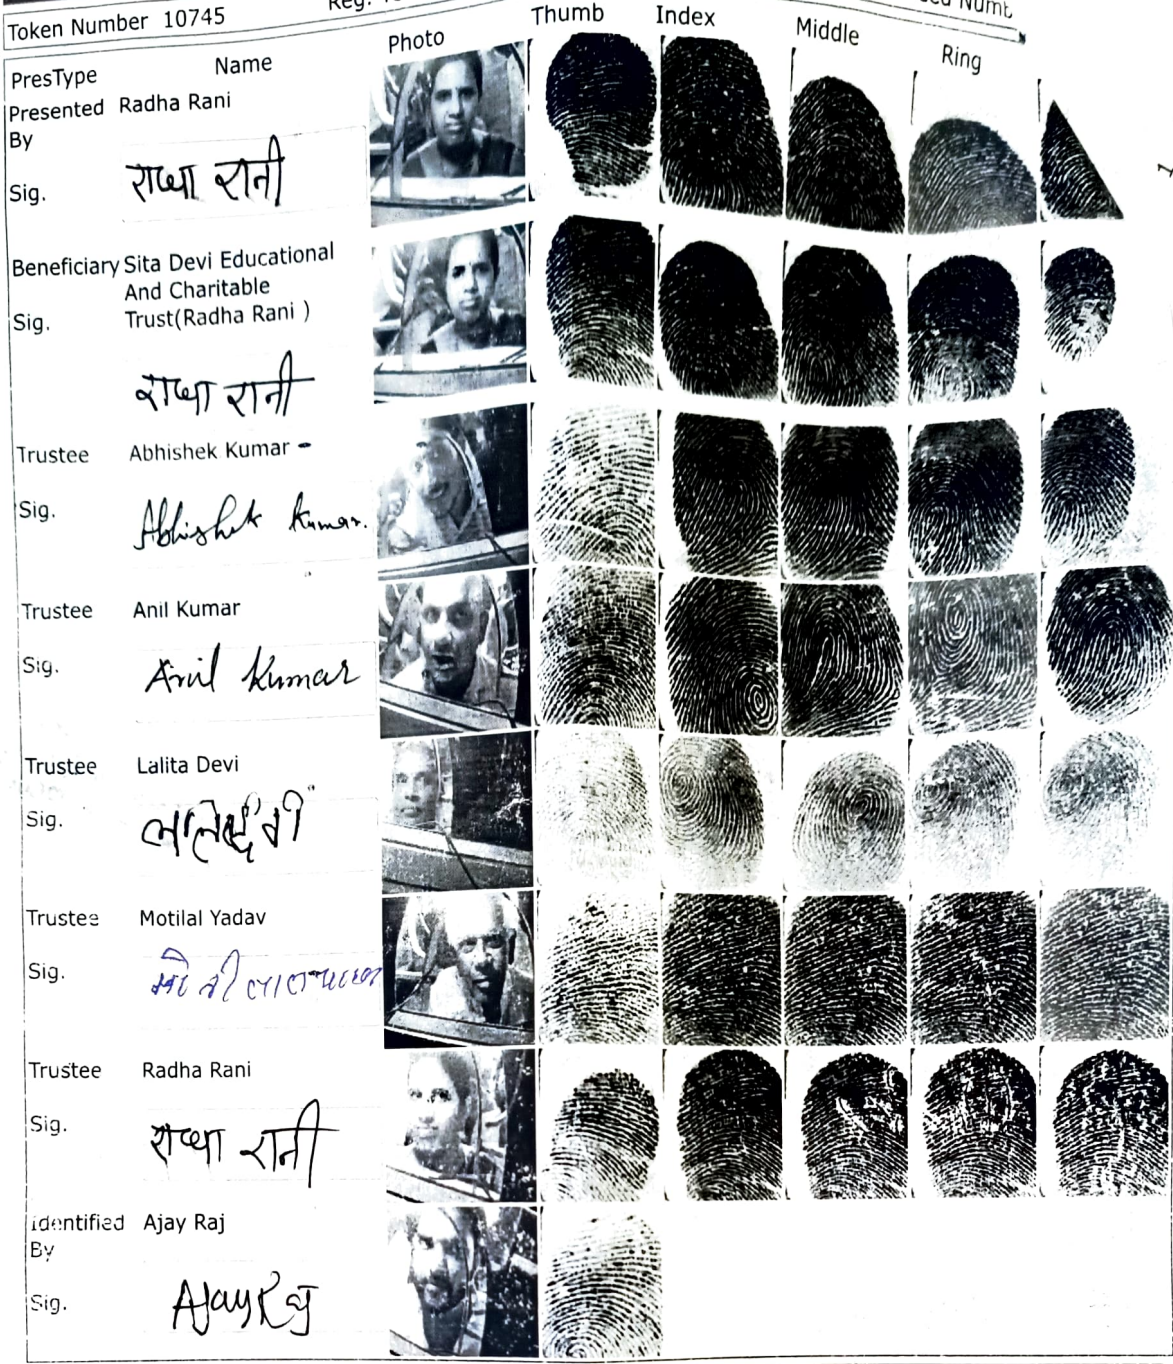 Token Number 10745
Thumb Index Middle Ring
PresType Name Photo
Presented By Radha Rani
Sig. राधा रानी
Beneficiary Sita Devi Educational
And Charitable
Trust(Radha Rani )
Sig.
राधा रानी
Trustee Abhishek Kumar -
Sig. Abhishek Kumar.
Trustee Anil Kumar
Sig. Anil Kumar
Trustee Lalita Devi
Sig.
Trustee Motilal Yadav
Sig.
Trustee Radha Rani
Sig. राधा रानी
Identified By Ajay Raj
Sig. Ajay Raj